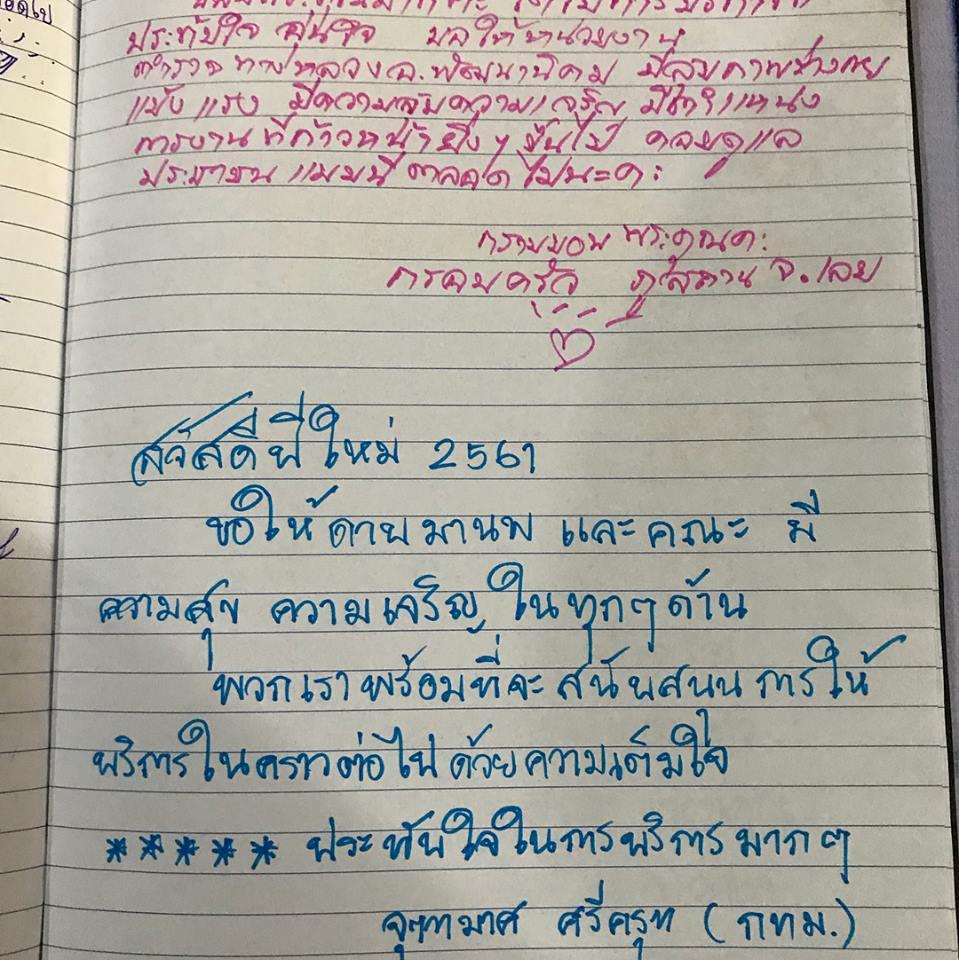 ประทับใจ อุ่นใจ ขอให้หน่วยงาน
ตำรวจทางหลวง อ.พัฒนานิคม มีสุขภาพร่างกาย
แข็งแรง มีความสุขความเจริญ มีตำแหน่ง
การงานที่ก้าวหน้ายิ่งๆ ขึ้นไป คอยดูแล
ประชาชนแบบนี้ตลอดไปนะคะ
กราบขอบพระคุณค่ะ
ครอบครัว ภูสีฐาน จ.เลย
สวัสดีปีใหม่ 2561
ขอให้ดาบมานพ และคณะ มี
ความสุข ความเจริญ ในทุกๆด้าน
พวกเราพร้อมที่จะสนับสนุนการให้
บริการในคราวต่อไปด้วยความเต็มใจ
***** ประทับใจในการบริการมากๆ
จุฑามาศ ศรีครุฑ (กทม.)